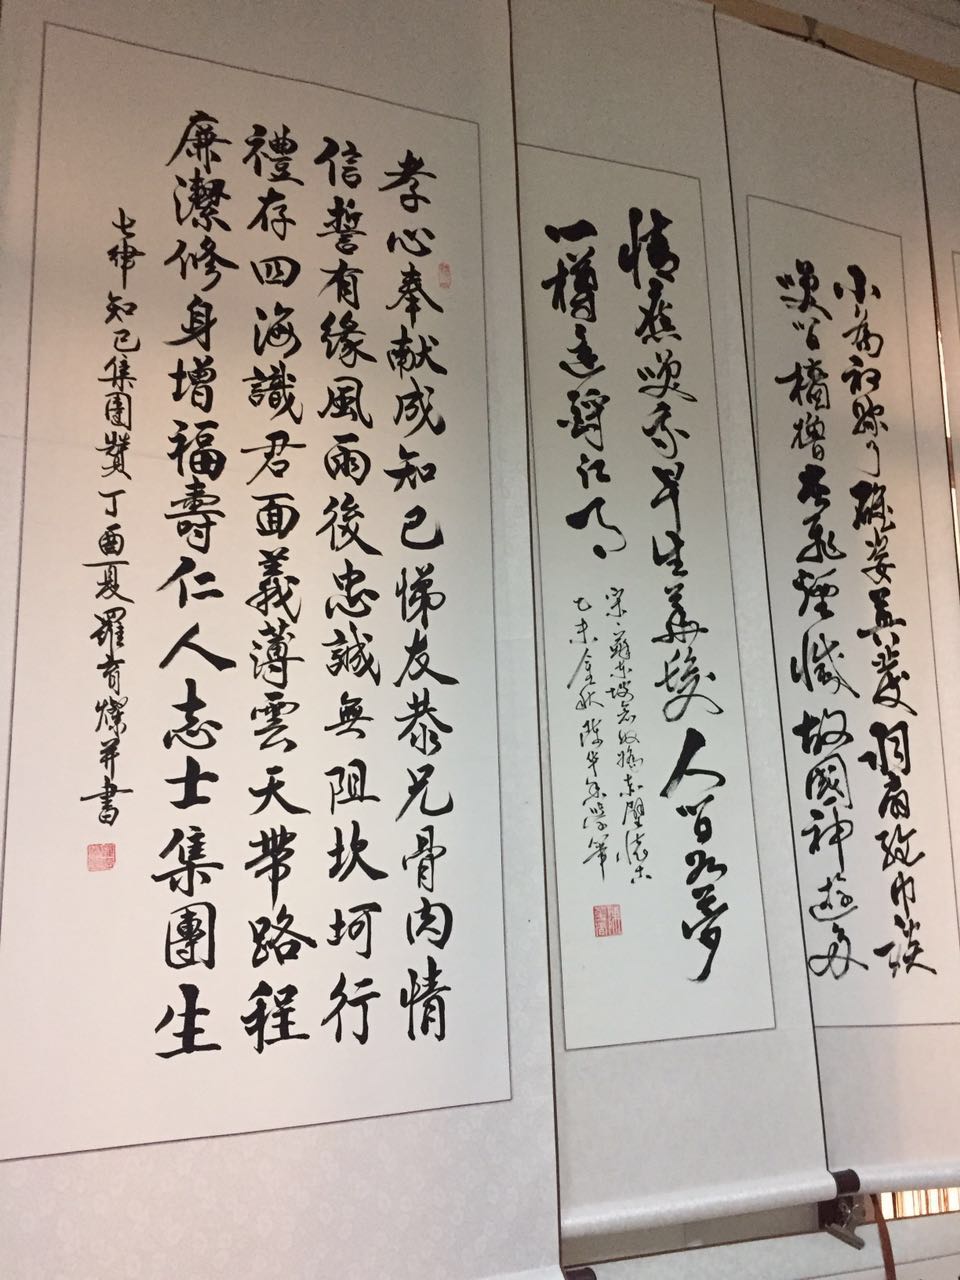 小喬初嫁了雄姿英發羽扇綸巾談
笑間檣櫓灰飛煙滅故國神遊多
情應笑我早生華髮人間如夢
一樽還酹江月
宋蘇東坡念奴嬌赤壁懷古
乙未金秋陳华
孝心奉献成知己悌友恭兄骨肉情
信誓有緣風雨後忠誠無阻坎坷行
禮存四海識君面義薄雲天帶路程
廉潔修身增福壽仁人志士集團生
七律知己集團贊丁酉夏羅育燦并書